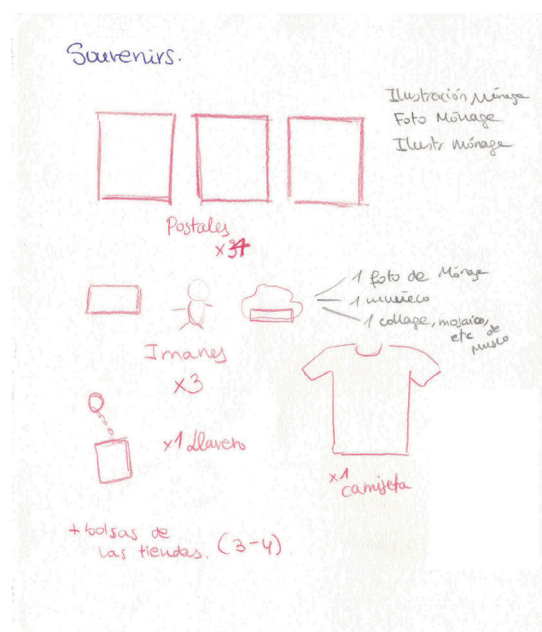 Souvenirs.
Ilustración
Foto
Ilustr
Postales
1 foto de
1 muñeco
1 collage, mosaico,
etc de
museo
Imanes
x3
x1 llavero
x1
camiseta
+ bolsas de
las tiendas. (3-4)